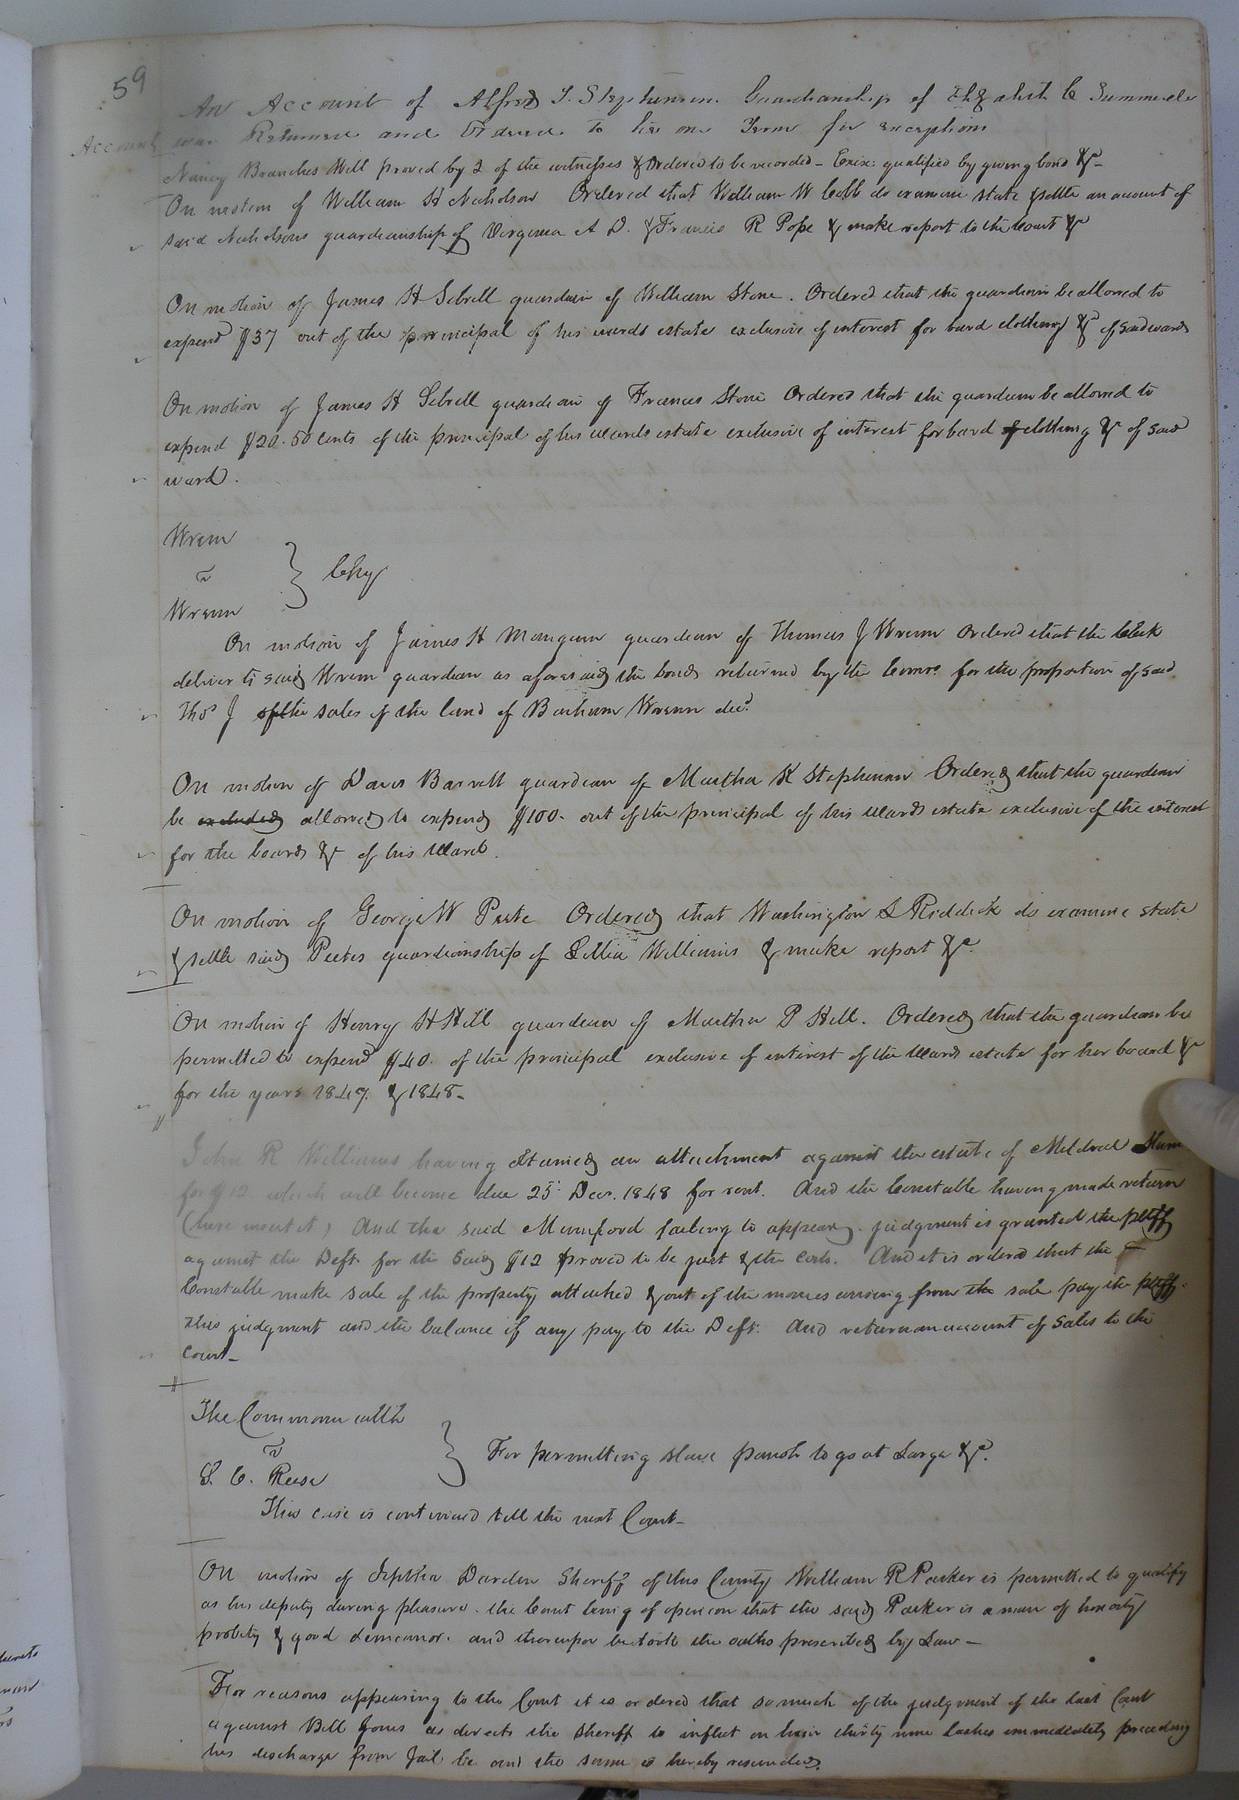 59
An Account of Alfred T. Stephenson Guardianship of Elizabeth C Summerell
Account was Returned and Ordered to lie one Term for exceptions
Nancy Branches Will proved by 2 of the witnesses & Ordered to be recorded - Exix: qualified by giving bond &c -
On motion of William H Nicholson Ordered that William W Cobb do examine state & settle an account of
said Nicholsons guardianship of Virginia A D. & Francis R Pope & make report to the Court &c
On motion of James H Sebrell guardian of William Stone. Ordered that the guardian be allowed to
expend $37 out of the principal of his wards estate exclusive of interest for bard clothing &c of said wards
On motion of James H Sebrell guardian of Frances Stone Ordered that the guardian be allowed to
expend $20.50 cents of the principal of his wards estate exclusive of interest for bard of clothing &c of said
ward.
Wrenn
v
Wrenn
} Chy
On motion of James H Mangum guardian of Thomas J Wrenn Ordered that the Clerk
deliver to said Wrenn guardian as aforesaid the bonds returned by the Comrs for the proportion of said
Thos J of the sales of the land of Barham Wrenn decd.
On motion of Davis Barrett guardian of Martha K Stephenson Ordered that the guardian
be excluded allowed to expend $100. out of the principal of his wards estate exclusive of the interest
for the board &c of his Ward.
On motion of George W Peete Ordered that Washington L Riddick do examine state
& settle said Peetes guardianship of Lellia Williams & make report &c.
On motion of Henry H Hill guardian of Martha P Hill. Ordered that the guardian be
permitted to expend $40. of the principal exclusive of interest of the Wards estate for her board &c
for the years 1847. & 1848 -
John R Williams having obtained an attachment against the estate of Mildred
for $12 which will become due 25 Decr. 1848 for rent. And the Constable having made return
(here insert it) And the said Mumford failing to appear. judgment is granted the pltff
against the Deft. for the said $12 proved to be just & the costs. And it is ordered that the
Constable make sale of the property attached & out of the monies arising from the sale pay the pltff.
this judgment and the balance if any pay to the Deft. And return an account of sales to the
Court -
The Commonwealth
v
L. C. Reese
} For permitting slave to go at Large &c.
This case is continued till the next Court -
On motion of Jeptha Darden Sheriff of this County William R Parker is permitted to qualify
as his deputy during pleasure. the Court being of opinion that the said Parker is a man of honesty
probity & good demeanor. and thereupon he took the oaths prescribed by Law -
For reasons appearing to the Court it is ordered that so much of the judgment of the last Court
against Bill Jones as directs the Sheriff to inflict on him thirty nine lashes immediately preceding
his discharge from Jail be and the same is hereby rescinded.